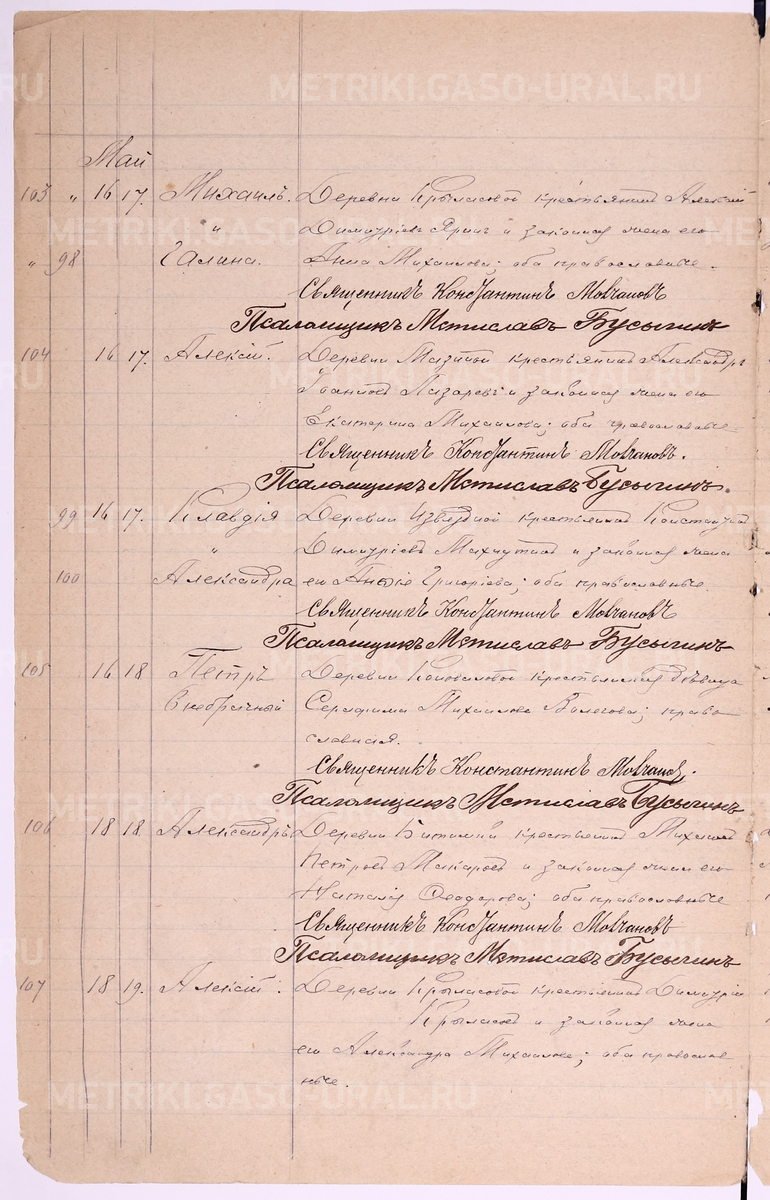 METRIKI.GASO-URAL.RU
Май
103 " 16 17. Михаилъ. Деревни Крыласовой крестьянинъ Алексій
" Димитріевъ и законная жена его
" 98 Галина. Анна Михаилова; оба православные.
Священникъ Константинъ Мовчановъ
Псаломщикъ Мстиславъ Бусыгинъ
104 16 17. Алексій. Деревни крестьянинъ Александръ
Іоанновъ Лазаревъ и законная жена его
Екатерина Михаилова; оба православные
Священникъ Константинъ Мовчановъ.
Псаломщикъ Мстиславъ Бусыгинъ.
99 16 17. Клавдія Деревни Извѣздной крестьянинъ Константинъ
" Димитріевъ и законная жена
100 Александра его Григоріева; оба православные.
Священникъ Константинъ Мовчановъ
Псаломщикъ Мстиславъ Бусыгинъ
105 16 18 Петръ Деревни Коноваловой крестьянская дѣвица
Внебрачный Серафима Михаилова; право
славная.
Священникъ Константинъ Мовчановъ.
Псаломщикъ Мстиславъ Бусыгинъ
106 18 18 Александръ Деревни Битимки крестьянинъ Михаилъ
Петровъ Макаровъ и законная жена его
Наталія Ѳеодорова; оба православные
Священникъ Константинъ Мовчановъ
Псаломщикъ Мстиславъ Бусыгинъ
107 18 19. Алексій. Деревни Крыласовой крестьянинъ Димитрій
Крыласовъ и законная жена
его Александра Михаилова; оба православ
ные.